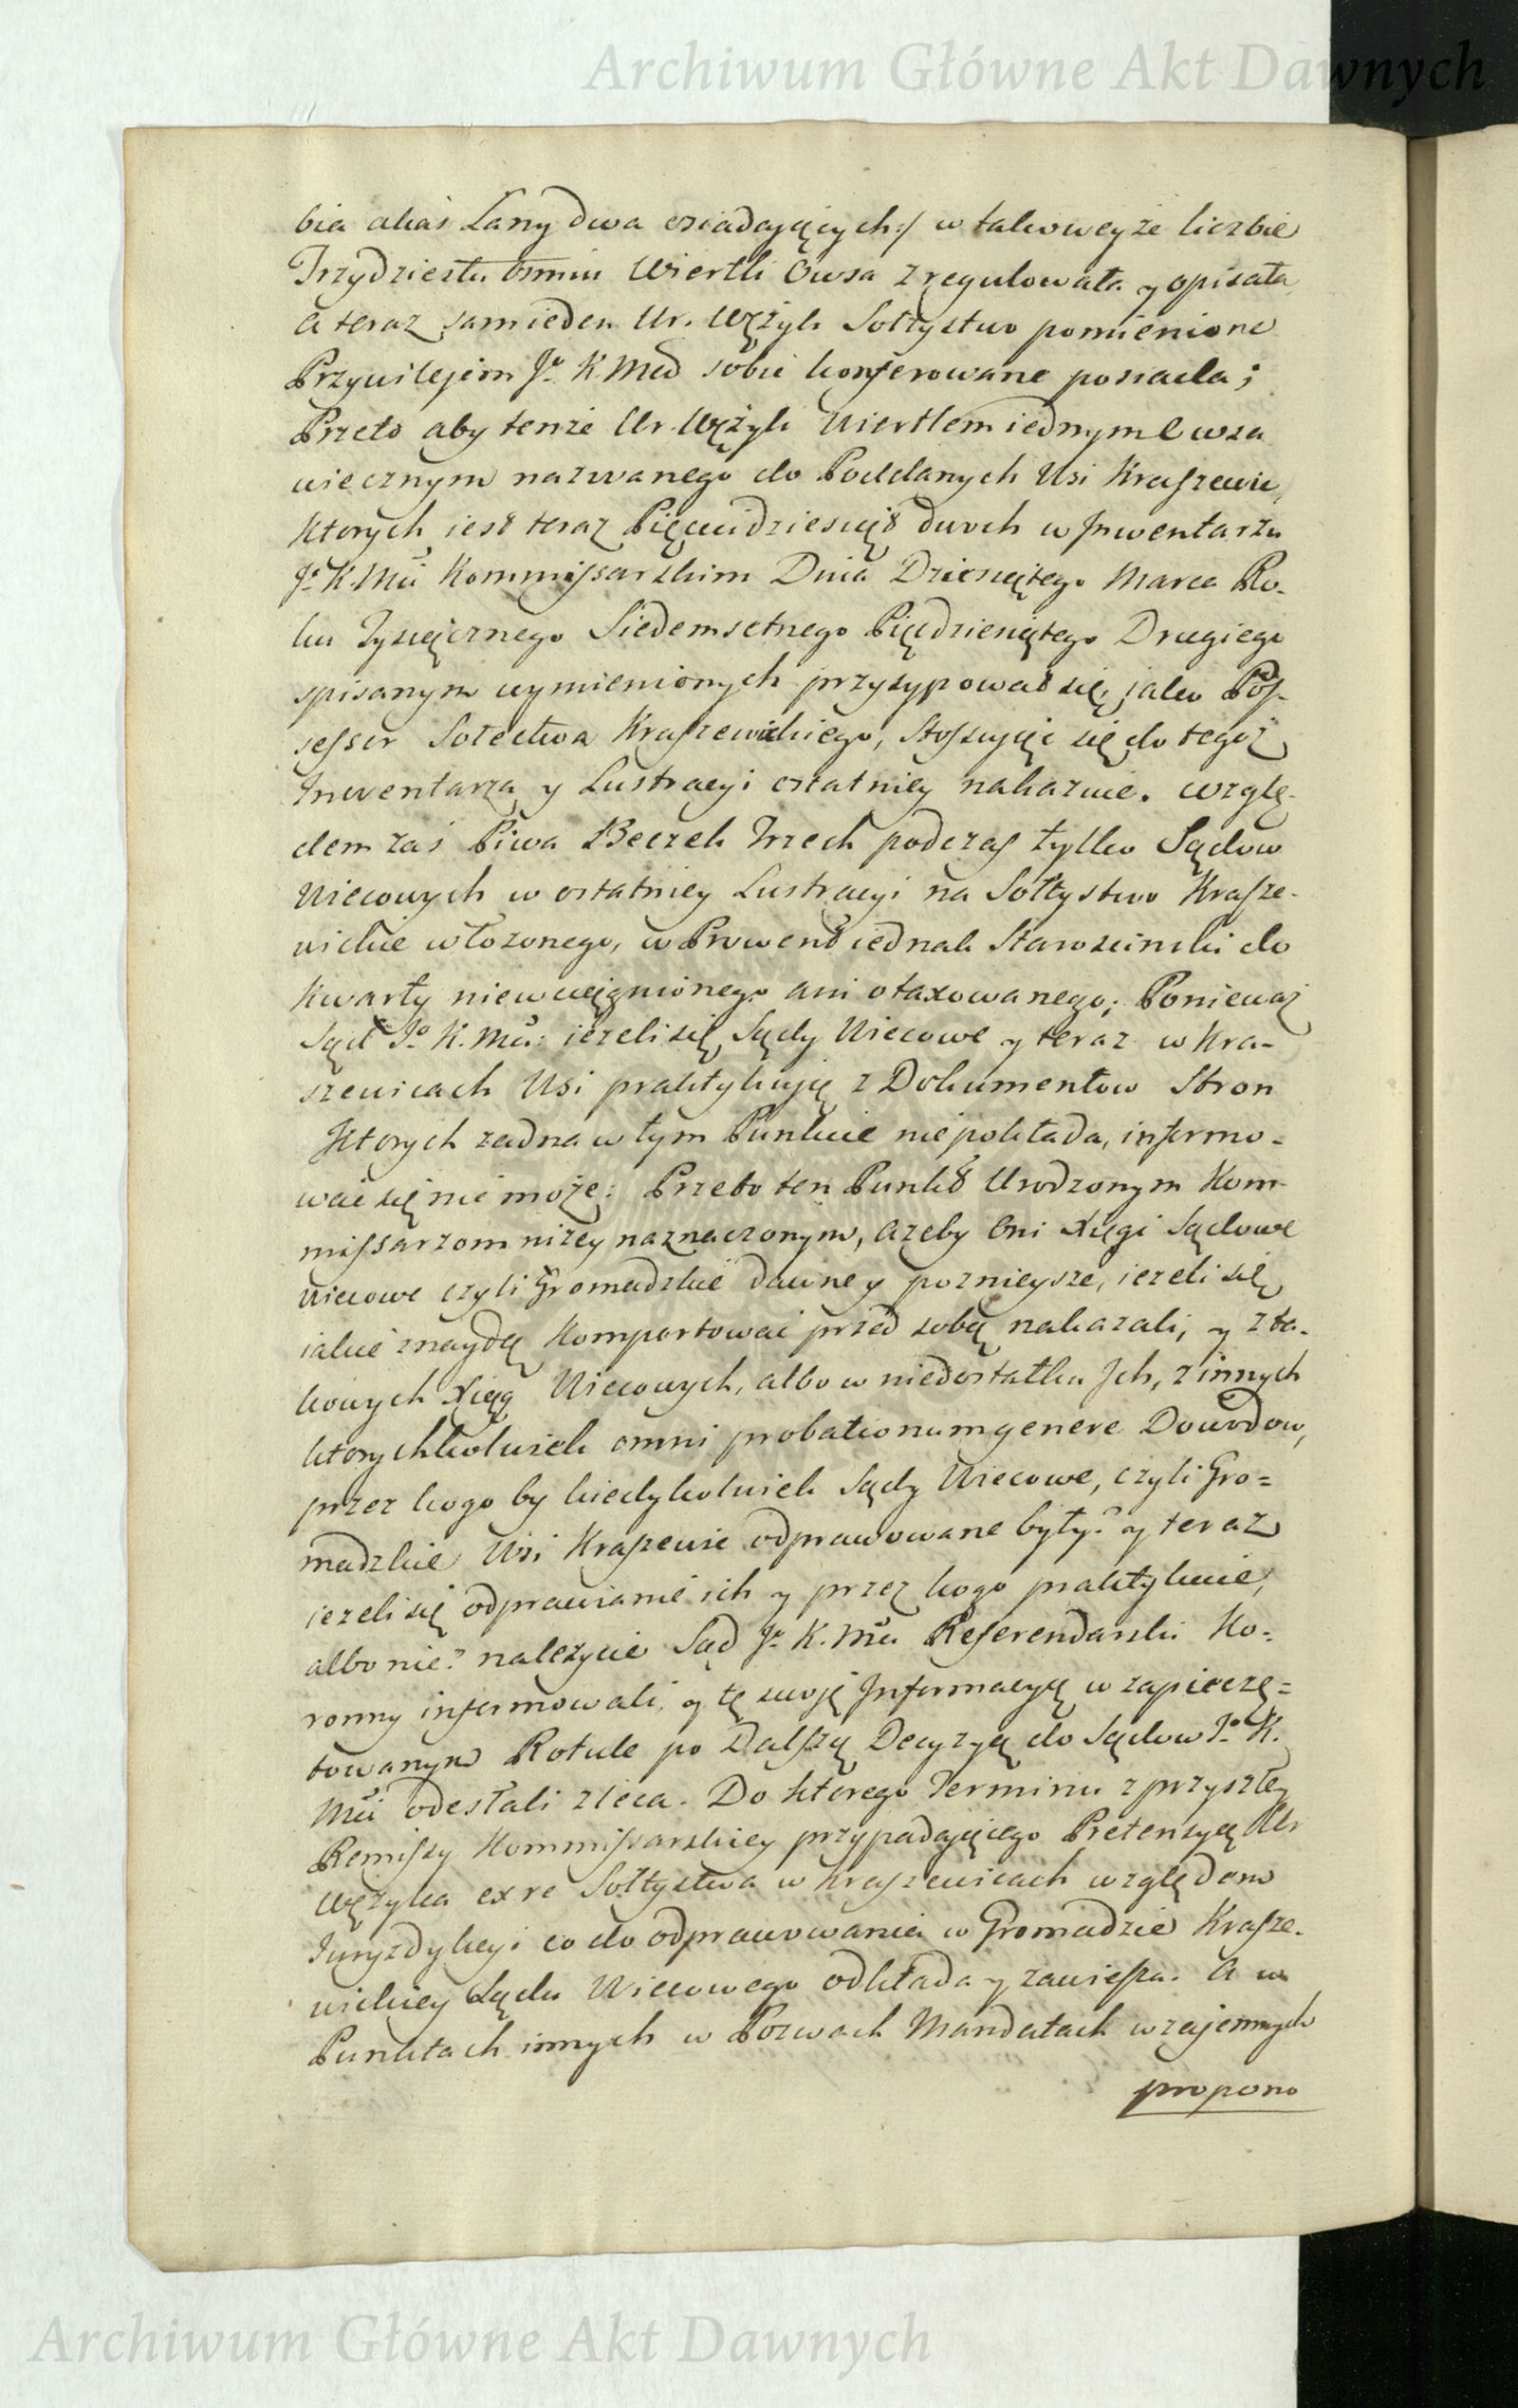 Archiwum Główne Akt Dawnych
bia alias Łany dwa osiadaiących:/ w takoweyże liczbie
Trzydziestu ośmiu Wiertli Owsa zregulowała y opisała
a teraz sam ieden Ur. Wężyk Sołtystwo pomienione
Przywilejem Jº K Mci sobie konferowane posiada;
Przeto aby tenże Ur. Wężyk Wiertlem iednym Owsa
wiecznym nazwanego do Poddanych Wsi Kraszewic,
ktorych iest teraz Pięcudziesiąt dwoch w Inwentarzu
Jº K. Mci Kommissarskim Dnia Dziesiątego Marca Ro-
ku Tysiącznego Siedemsetnego Pięćdziesiątego Drugiego
spisanym wymienionych przysypował się, jako Pos-
sessor Sołectwa Kraszewickiego, stosując się do tegoż
Inwentarza y Lustracyi ostatniey nakazuie. Wzglę-
dem zaś Piwa Beczek Trzech podczas tylko Sądow
Wiecowych w ostatniey Lustracyi na Sołtystwo Krasze-
wickie włożonego, w Prowent iednak Starościnski do
Kwarty niewciągnionego ani otaxowanego; Ponieważ
Sąd Jº K. Mci: ieżeli się Sądy Wiecowe y teraz w Kra-
szewicach Wsi praktykują z Dokumentow Stron
Ktorych żadna w tym Punkcie niepokłada, informo-
wać się nie może: Przeto ten Punkt Urodzonym Kom-
missarzom niżey naznaczonym, ażeby Oni Xięgi Sądowe
wiecowe czyli Gromadzkie dawne y poznieysze, ieżeli się
iakie znaydą komportować przed sobą nakazali, y z ta-
kowych Xiąg Wiecowych, albo w niedostatku Ich, z innych
ktorychkolwiek omni probationum genere Dowodow,
przez kogo by kiedykolwiek Sądy Wiecowe, czyli Gro=
madzkie Wsi Kraszewic odprawowane były? y teraz
ieżeli się odprawianie ich y przez kogo praktykuie,
albo nie? należycie Sąd Jº K. Mci Referendarski Ko=
ronny informowali, y tę swoję Informacyą w zapieczę=
towanym Rotule po Dalszą Decyzyą do Sądow Jº K.
Mci odesłali zleca. Do ktorego Terminu z przyszłey
Remissy Kommissarskiey przypadającego Pretensyą Ur
Wężyka ex re Sołtystwa w Kraszewicach względem
Juryzdykcyi co do odprawowania w Gromadzie Krasze-
wickiey Sądu Wiecowego odkłada y zawiesza. A w
Punktach innych w Pozwach Mandatach wzajemnych
propono
Archiwum Główne Akt Dawnych